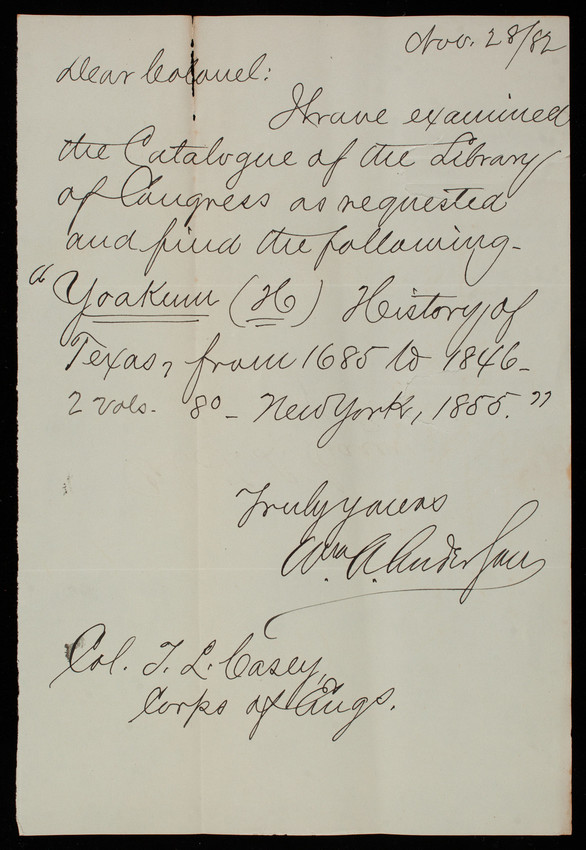 Nov. 28/82
Dear Colonel:
I have examined
the Catalogue of the Library
of Congress as requested
and find the following-
"Yoakum (H) History of
Texas, from 1685 to 1846-
2 vols. 8o- New York, 1855."
Truly yours
Wm. A. Anderson
Col. T. L. Casey,
Corps of Engs.